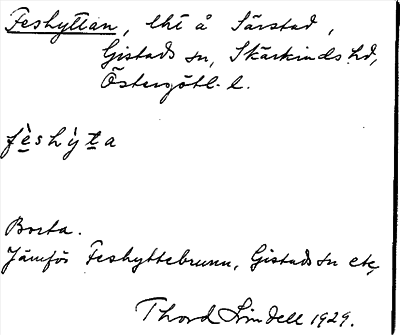 Feshyttan, lht å Särstad,
Gistads sn, Skärkinds hd,
Östergötl. l.
fèshỳta
Borta.
Jämför Feshyttebrunn, Gistads sn etc,
Thord Lindell 1929.